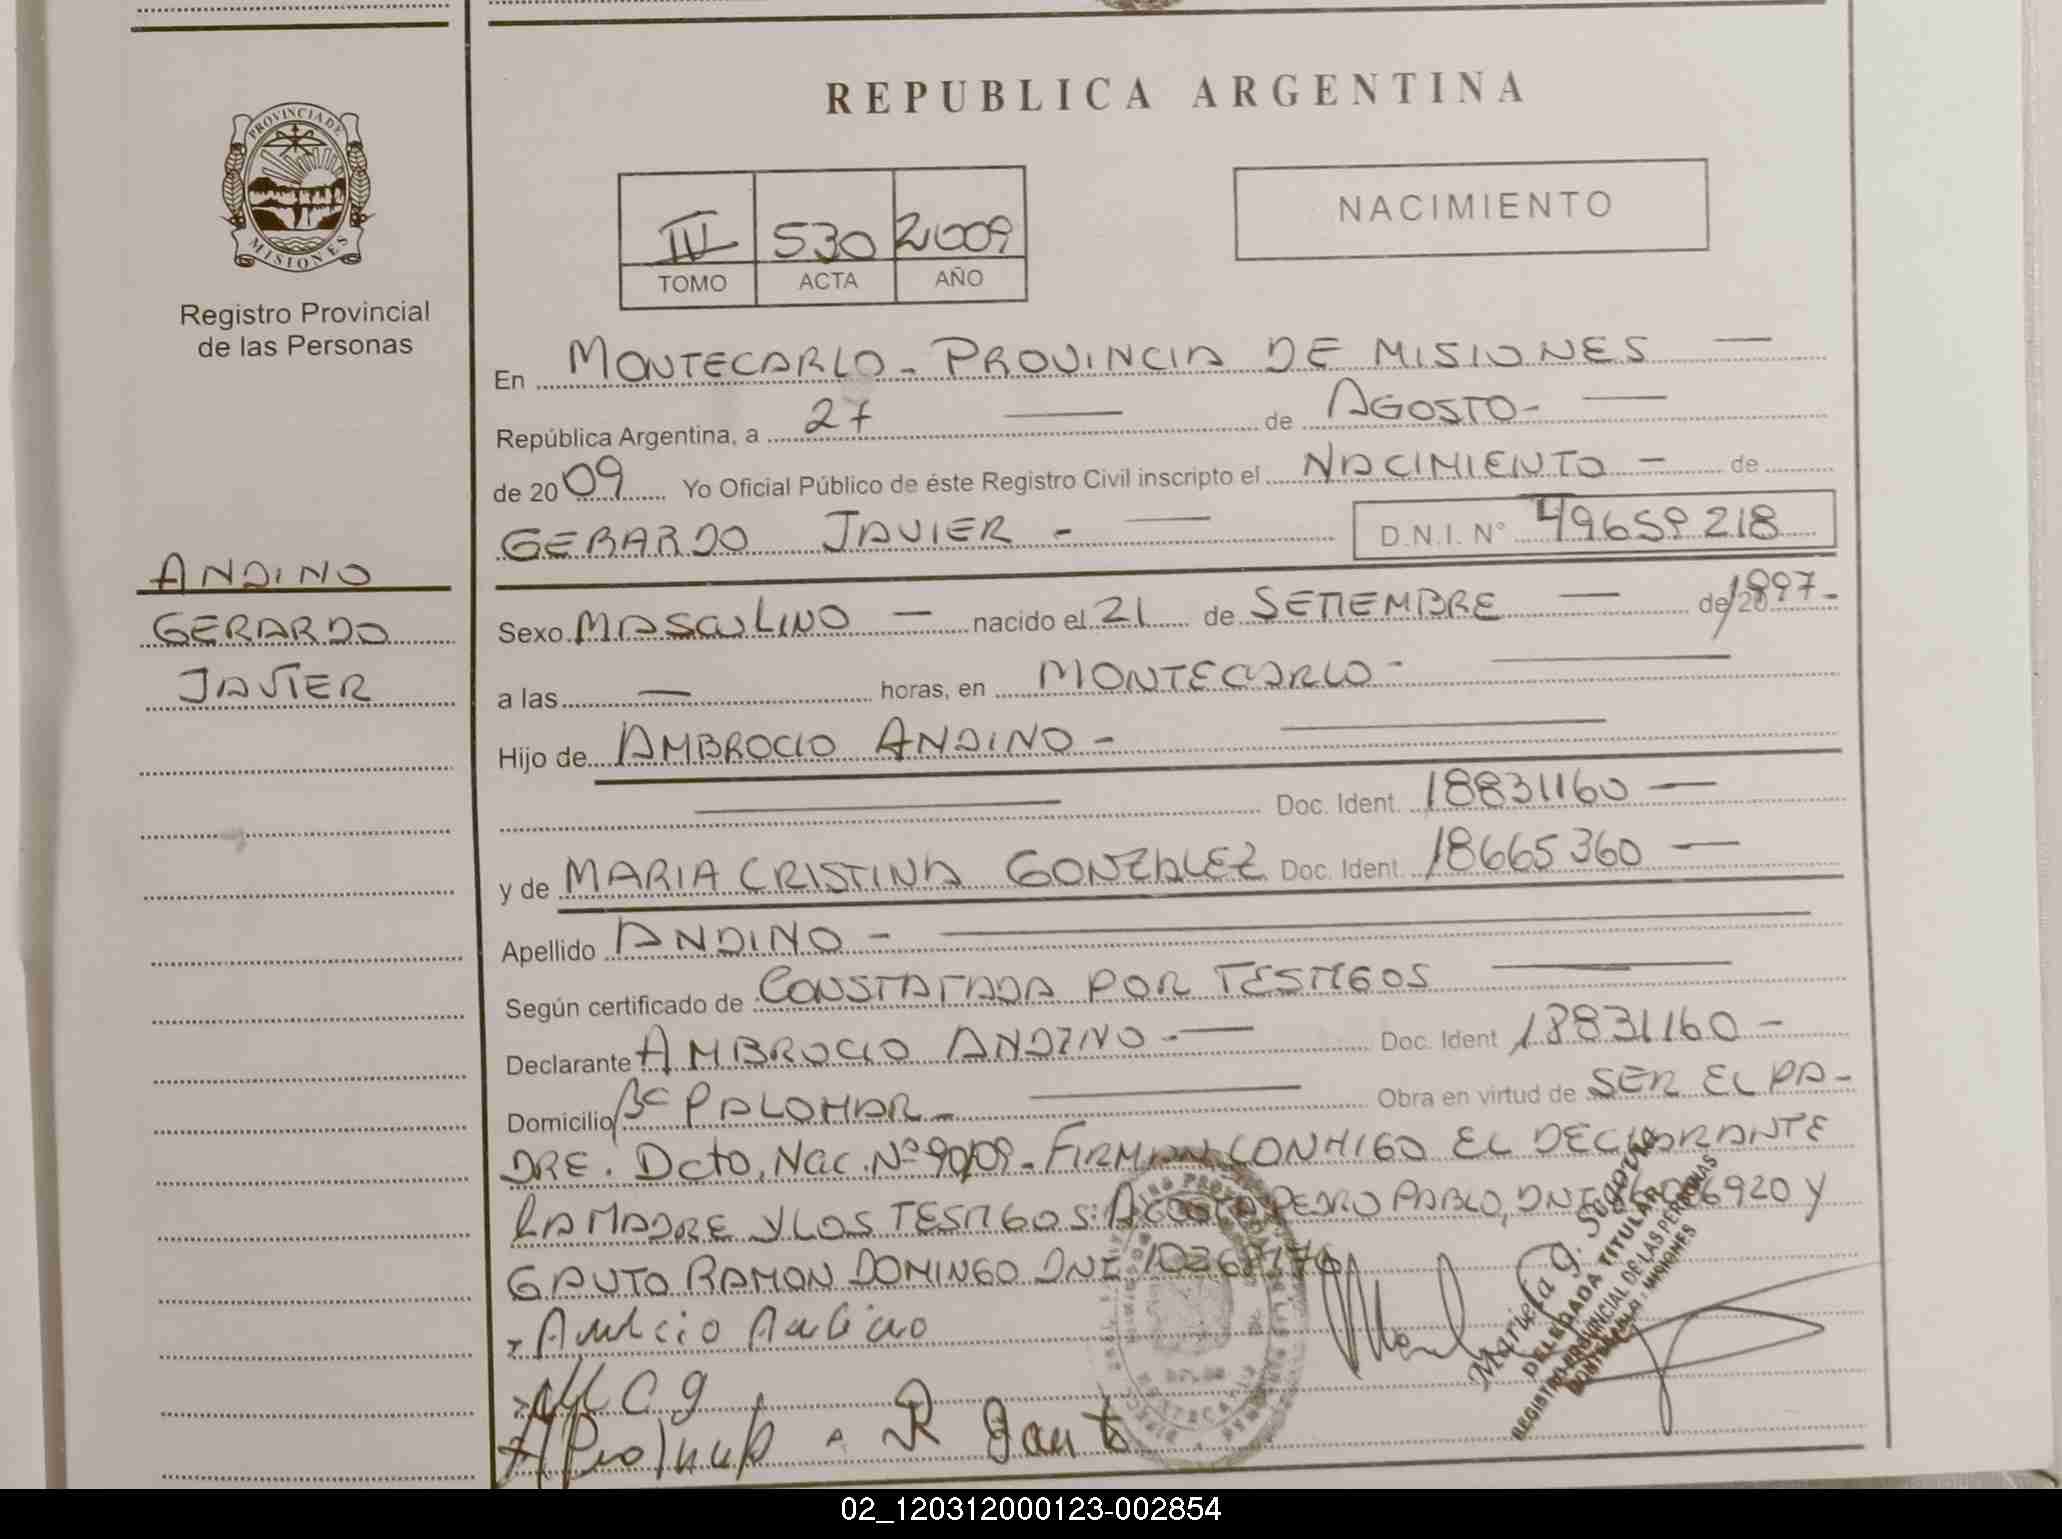 REPUBLICA ARGENTINA
PROVINCIA DE
MISIONES
Registro Provincial
de las Personas
530 2009
TOMO ACTA AÑO
NACIMIENTO
En MONTECARLO - PROVINCIA DE MISIONES —
República Argentina, a 27 — de AGOSTO - —
de 2009 Yo Oficial Público de éste Registro Civil inscripto el NACIMIENTO - de
GERARDO JAVIER - — D.N.I. N° 49659218
ANDINO
GERARDO
JAVIER
Sexo MASCULINO — nacido el 21 de SETIEMBRE — de 1997-
a las — horas, en MONTECARLO - —
Hijo de AMBROCIO ANDINO - —
— Doc. Ident. 18831160 —
y de MARIA CRISTINA GONZALEZ Doc. Ident. 18665360 —
Apellido ANDINO - —
Según certificado de CONSTATADA POR TESTIGOS —
Declarante AMBROCIO ANDINO - — Doc. Ident 18831160 -
Domicilio Bº PALOMAR - — Obra en virtud de SER EL PA-
DRE. Dcto. Nac. Nº 90/09 - FIRMAN CONMIGO EL DECLARANTE
LA MADRE Y LOS TESTIGOS: ACOSTA PEDRO PABLO, DNI 6920 Y
GAUTO RAMON DOMINGO DNI
Mariela G.
DELEGADA TITULAR
REGISTRO PROVINCIAL DE LAS PERSONAS
MONTECARLO - MISIONES
M C g
R Gauto
02_120312000123-002854